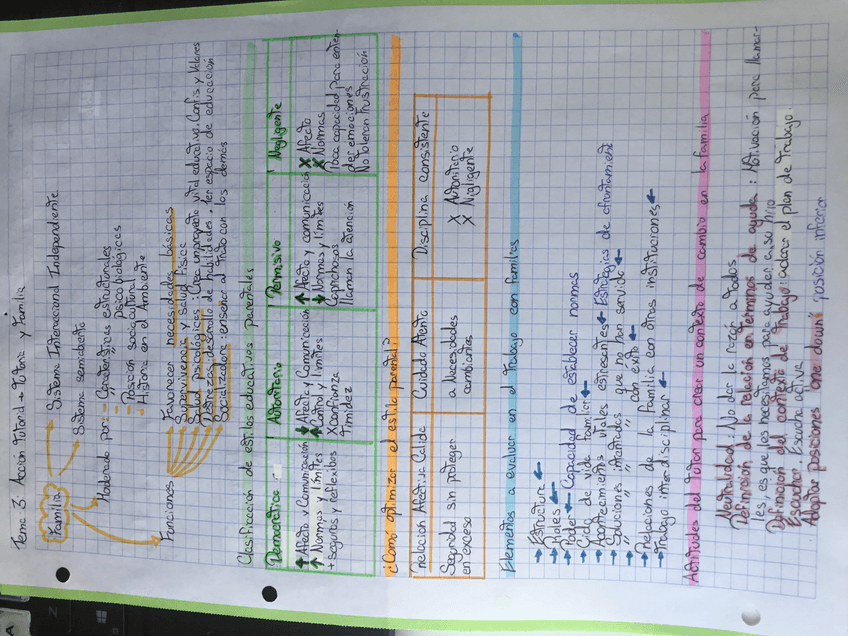 Tema 3: Acción Tutorial → Tutoria y Familia
Familia
Sistema Interaccional Independiente
Sistema semiabierto
Moderado por: - Características estructurales
" psicobiológicas
- Posición sociocultural
- Historia en el Ambiente
Funciones
Favorecer necesidades básicas
Supervivencia y Salud física
Salud psicológicas : Crea un proyecto vital educativo. Confis. y Valores
Destrezas, desarrollo de habilidades. 1er espacio de educación
Socializadora enseña al trato con los demás
Clasificación de estilos educativos parentales
Democrático
↑ Afecto y Comunicación
↑ Normas y límites
+ seguros y reflexibos
Autoritario
↓ Afecto y Comunicación
↑ Control y límites
X confianza
Timidez
Permisivo
↑ Afecto y comunicación
↓ Normas y límites
Caprichosos
llaman la atención
Negligente
X Afecto
X Normas
Poca capacidad para enten-
der emociones
No toleran frustración
¿Como optimizar el estilo parental?
relación Afectiva Calida
Seguridad sin proteger
en exceso
Cuidado Atento
a Necesidades
cambiantes
Disciplina consistente
X Autoritario
X Nigligente
Elementos a evaluar en el Trabajo con familias
→ Estructure ←
→ Roles ←
→ Poder ← Capacidad de establecer normas
→ Ciclo de vida familiar ←
→ Acontecimientos vitales estresantes ← Estrategias de afrontamient
→ Soluciones intentadas que no han servido ←
→ " " con éxito ←
→ Relaciones de la familia con otras instituciones ←
→ Trabajo interdisciplinar ←
Actitudes del Tutor para crear un contexto de cambio en la familia
Neutralidad: No dar la razón a todos
Definición de la relación en términos de ayuda : Motivación para llamar-
les, es que les necesitamos para ayudar a su hijo
Definición del contexto de Trabajo: aclarar el plan de Trabajo.
Escuchar: Escucha activa
Adoptar posiciones "one down" posición inferior